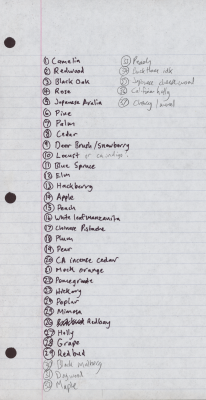 ① Camelia
② Redwood
③ Black Oak
④ Rose
⑤ Japanese Aralia
⑥ Pine
⑦ Palm
⑧ Cedar
⑨ Deer Brush/Snowberry
⑩ Locust or
⑪ Blue Spruce
⑫ Elm
⑬ Hackberry
⑭ Apple
⑮ Peach
⑯ White leaf manzanita
⑰ Chinese Pistache
⑱ Plum
⑲ Pear
⑳ CA incense cedar
㉑ Mock orange
㉒ Pomegranate
㉓ Hickory
㉔ Poplar
㉕ Mimosa
㉖ Redbay
㉗ Holly
㉘ Grape
㉙ Redbud
㉚ Black Mulberry
㉛ Dogwood
㉜ Maple
Cherry laurel